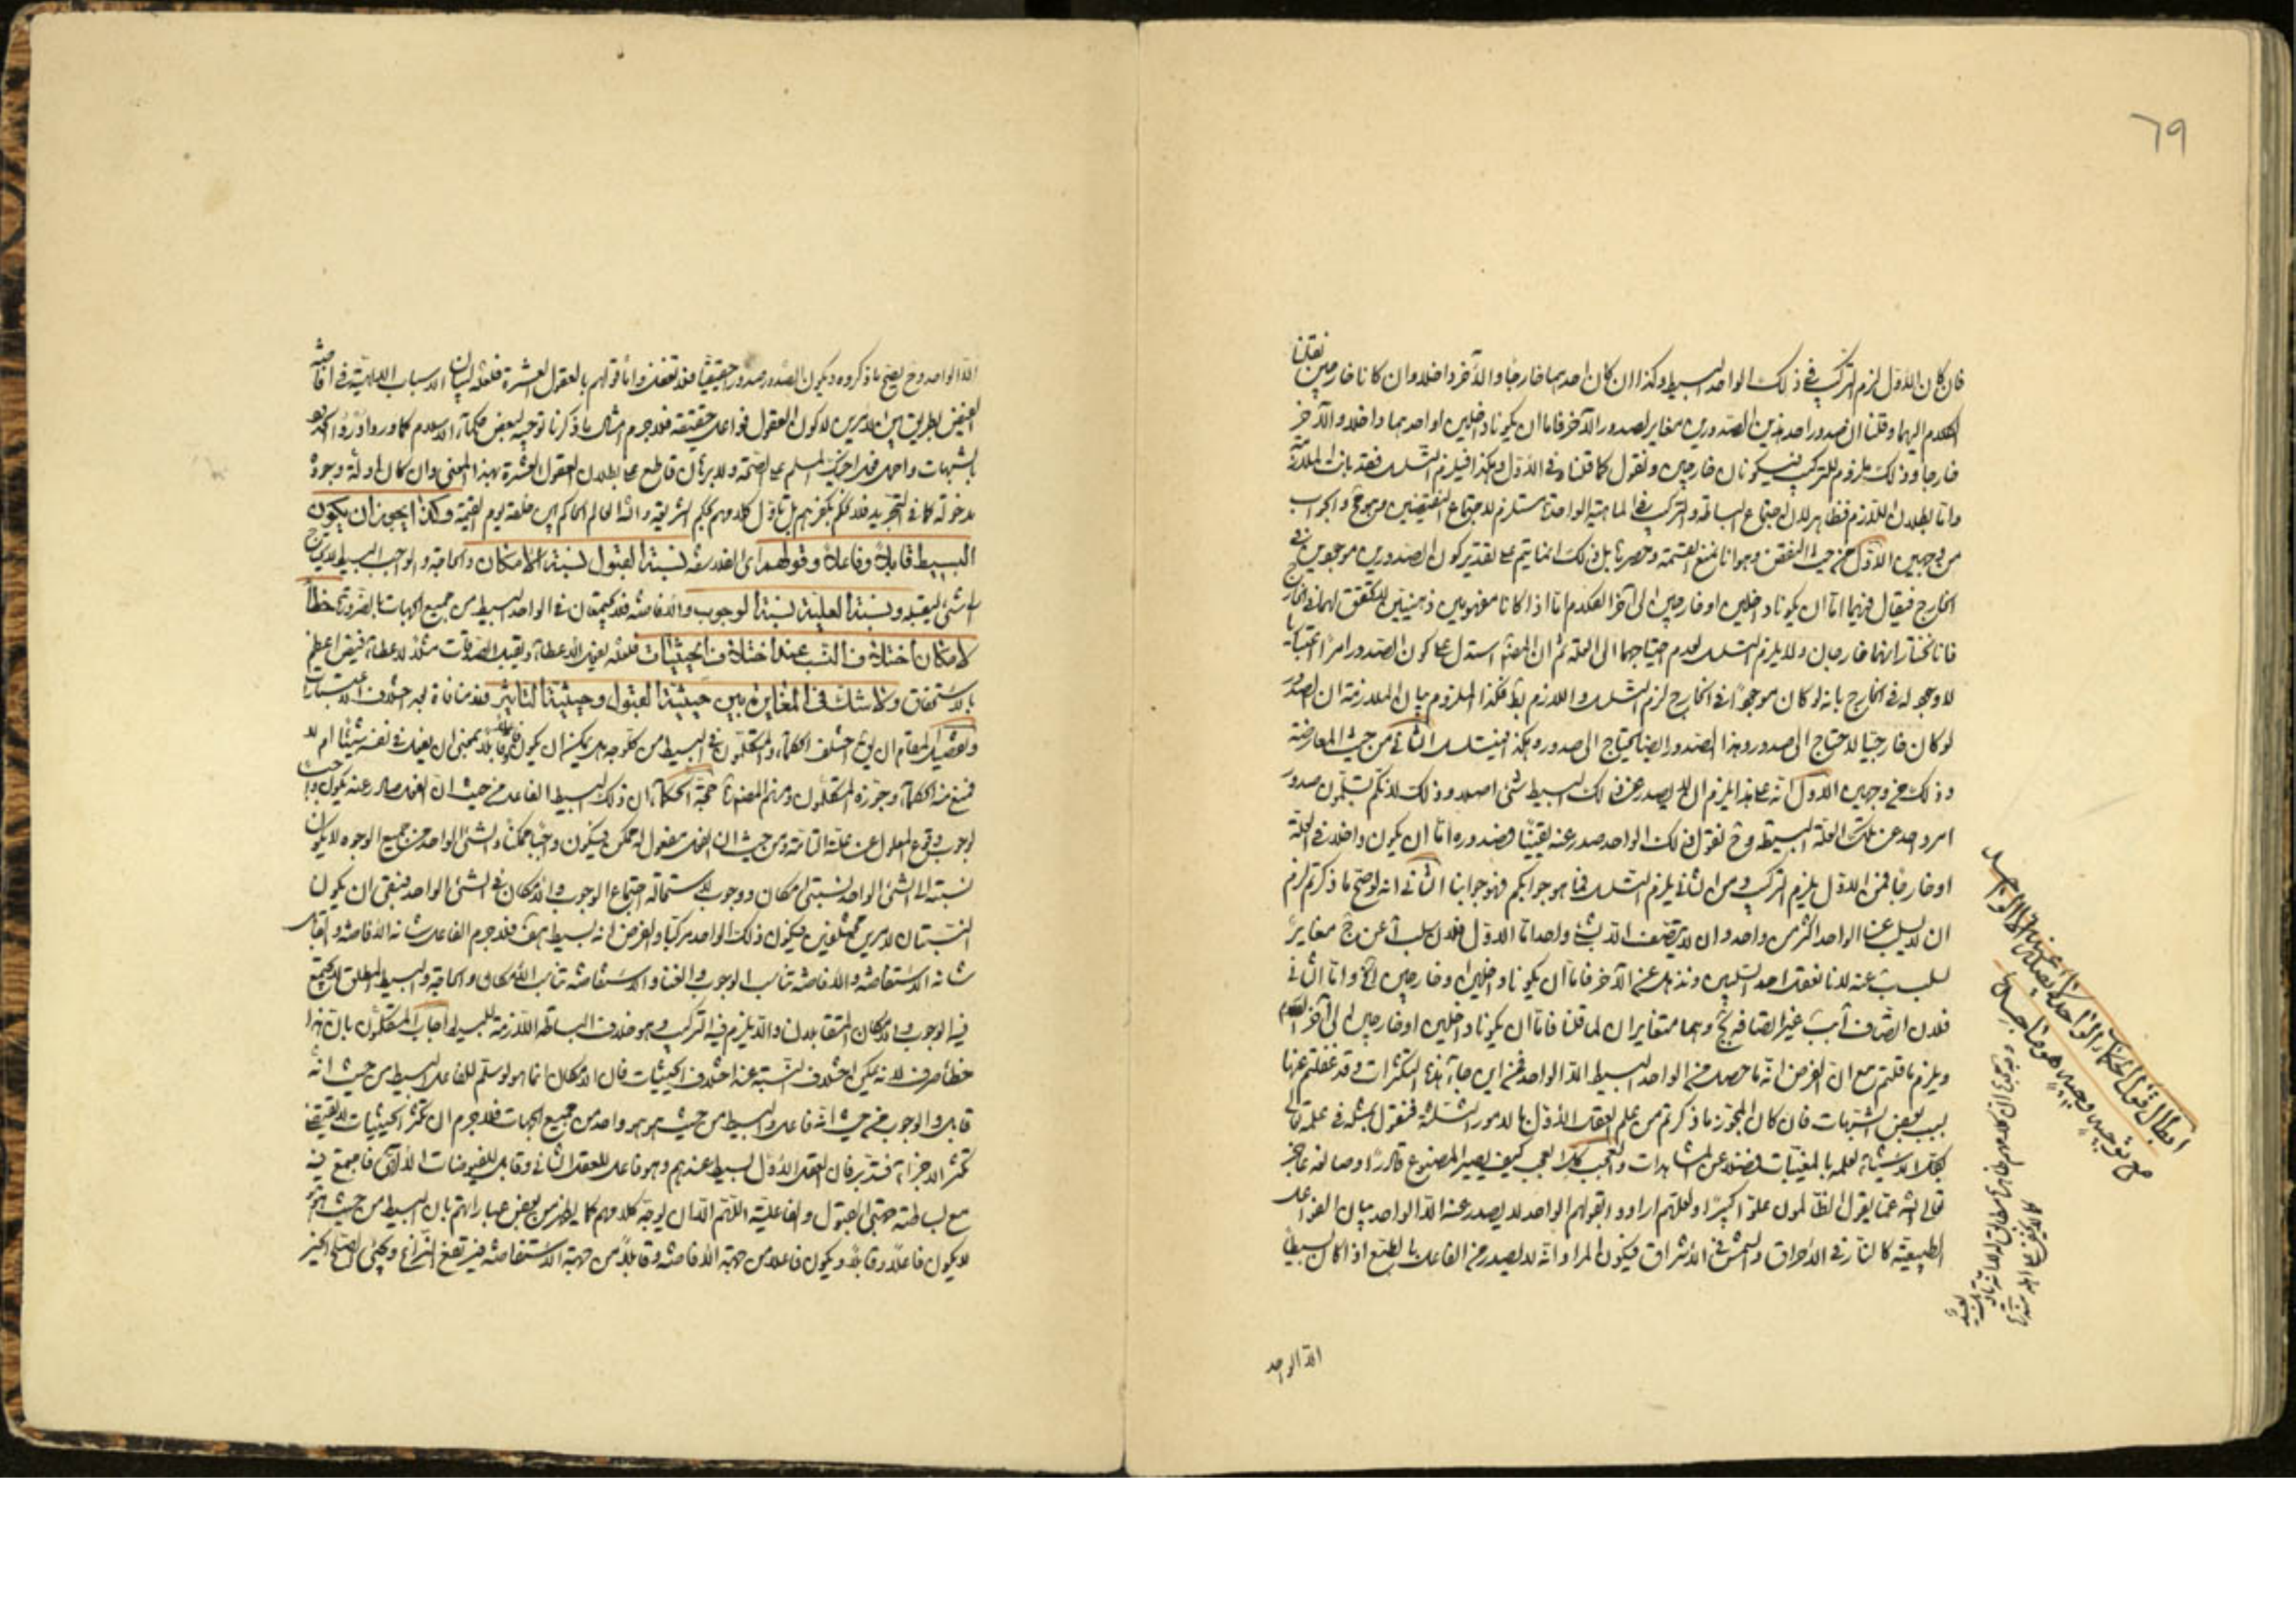 ٦٩
فان كان الاول لزم التركب في ذلك الواحد البسيط وكذا ان كان احدهما خارجا والآخر داخلا وان كانا خارجين نقلنا
الكلام اليهما وقلنا ان صدور احد هذين الصدورين مغاير لصدور الآخر فاما ان يكونا داخلين او احدهما داخلا والآخر
خارجا وذلك ملزوم للتركب فيكونان خارجين ونقول كما قلنا في الاول وهكذا فيلزم التسلسل فقد بانت الملازمة
واما بطلان اللازم فظاهر لان اجتماع البساطة والتركب في الماهية الواحدة مستلزم لاجتماع النقيضين وهو مح والجواب
من وجهين الاول من حيث النقض وهو انا نمنع القسمة وحصرها بل ذلك انما يتم على تقدير كون الصدورين موجودين في
الخارج فيقال فيهما اما ان يكونا داخلين او خارجين الى آخر الكلام اما اذا كانا مفهومين ذهنيين لا تحقق لهما في الخارج
فانا نختار انهما خارجان ولا يلزم التسلسل لعدم احتياجهما الى العلة ثم ان المصنف استدل على كون الصدور امرا اعتباريا
لا وجود له في الخارج بانه لو كان موجودا في الخارج لزم التسلسل واللازم بط فكذا الملزوم بيان الملازمة ان الصدور
لو كان خارجيا لاحتاج الى صدور وهذا الصدور ايضا يحتاج الى صدور وهكذا فيتسلسل الثاني من حيث المعارضة
وذلك من وجهين الاول انه على هذا يلزم ان لا يصدر عن ذلك البسيط شئ اصلا وذلك لانكم تسلمون صدور
امر واحد عن تلك العلة البسيطة وح نقول ذلك الواحد صدر عنه يقينا فصدوره اما ان يكون داخلا في العلة
او خارجا فمن الاول يلزم التركب ومن الثاني يلزم التسلسل فما هو جوابكم فهو جوابنا الثاني انه لو صح ما ذكرتم لزم
ان لا يسلب عن الواحد اكثر من واحد وان لا يتصف الا بشئ واحد اما الاول فلان سلب آ عن ج مغاير
لسلب ب عنه لانا نعقل احد السلبين ونذهل عن الآخر فاما ان يكونا داخلين او خارجين الخ واما الثاني
فلان اتصاف آ بب غير اتصافه بج وهما متغايران لما قلنا فاما ان يكونا داخلين او خارجين الى آخر الكلام
ويلزم ما قلتم مع ان الفرض انه ما حصل من الواحد البسيط الا الواحد فمن اين جاء هذه التكثرات وقد غفلتم عنها
بسبب بعض الشبهات فان كان المجوز ما ذكرتم من علم العقل الاول بالامور الثلثة فنقول بمثله في علمه تعالى
بكل الاشياء لعلمه بالمغيبات فضلا عن المشاهدات والعجب كل العجب كيف يصير المصنوع قادرا وصانعه عاجز
تعالى الله عما يقول الظالمون علوا كبيرا ولعلهم ارادوا بقولهم الواحد لا يصدر عنه الا الواحد بيان الفواعل
الطبيعية كالنار في الاحراق والشمس في الاشراق فيكون المراد انه لا يصدر من الفاعل بالطبع اذا كان بسيطا
الا الواحد
ابطال قول الحكماء الواحد لا يصدر عنه الا الواحد
مع توجيهين وجيهين
الا الواحد وح يصح ما ذكروه ويكون الصدور صدورا حقيقيا فلا تغفل واما قولهم بالعقول العشرة فلعله لبيان الاسباب الالهية في افاضة
الفيض بطريق بين الامرين لا كون العقول فواعل حقيقة فلا جرم مثال ما ذكرنا توجيه لبعض حكماء الاسلام كما ورد ادرؤا الحدود
بالشبهات واحمل فعل اخيك المسلم على الصحة ولا برهان قاطع على بطلان العقول العشرة بهذا المعنى وان كان ادلة وجوده
مدخولة كما في التجريد فلا نحكم بكفرهم بل نأول كلامهم بحكم الشريعة والله العالم الحاكم بين خلقه يوم القيمة وكذا يجوز ان يكون
البسيط قابلا وفاعلا وقولهم اى الفلاسفة نسبة القبول نسبة الامكان والحاجة والواجب البسيط لا يحتاج
الى شئ ليقبله ونسبة العلية نسبة الوجوب والافاضة فلا يجتمعان في الواحد البسيط من جميع الجهات بالضرورة خطأ
لامكان اختلاف النسب عند اختلاف الحيثيات فلعله يفعل الاعطاء ويقبل الصدقات مثلا لاعطاء فيض اعظم
بالاستحقاق ولا شك في المغايرة بين حيثية القبول وحيثية التاثير فلا منافاة لجهة اختلاف الاعتبارات
وتفصيل المقام ان يق اختلف الحكماء والمتكلمون في البسيط من كل وجه هل يمكن ان يكون فاعلا قابلا بمعنى ان يفعل في نفسه شيئا ام لا
فمنع منه الحكماء وجوزه المتكلمون ومنهم المصنف حجة الحكماء ان ذلك البسيط الفاعل من حيث ان الفعل صادر عنه يكون واجبا
لوجوب وقوع المعلول عن علته التامة ومن حيث ان الفعل مفعول له ممكن فيكون واجبا ممكنا والشئ الواحد من جميع الوجوه لا يكون
نسبته الى الشئ الواحد نسبتي امكان ووجوب لاستحالة اجتماع الوجوب والامكان في الشئ الواحد فبقى ان يكون
النسبتان لامرين مختلفين فيكون ذلك الواحد مركبا والفرض انه بسيط هف فلا جرم الفاعل شانه الافاضة والقابل
شانه الاستفاضة والافاضة تناسب الوجوب والغنا والاستفاضة تناسب الامكان والحاجة والبسيط المطلق لا يجتمع
فيه الوجوب والامكان المتقابلان والا يلزم فيه التركب وهو خلاف البساطة اللازمة للبسيط اجاب المتكلمون بان هذا
خطأ صرف لانه يمكن اختلاف النسبة عند اختلاف الحيثيات فان الامكان انما هو لو سلم للفاعل البسيط من حيث انه
قابل والوجوب من حيث انه فاعل والبسيط من حيث هو هو واحد من جميع الجهات فلا جرم ان تكثر الحيثيات لا يقتضي
تكثر الاجزاء فتدبر فان العقل الاول بسيط عندهم وهو فاعل للعقل الثاني وقابل للفيوضات الاول فاجتمع فيه
مع بساطته جهتي القبول والفاعلية اللهم الا ان يوجه كلامهم كما يظهر من بعض عباراتهم بان البسيط من حيث هو هو
لا يكون فاعلا وقابلا ويكون فاعلا من جهة الافاضة وقابلا من جهة الاستفاضة فيرتفع النزاع